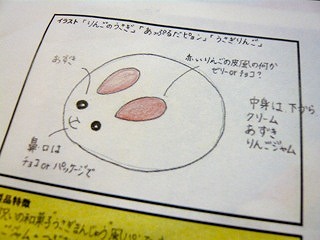 イラスト「りんごのうさぎ」「あっぷるだピョン」「うさぎりんご」
あずき
赤いりんごの皮風の何か
ゼリーorチョコ?
中身は下から
クリーム
あずき
りんごジャム
鼻、口は
チョコorパッケージで
品特徴
祝いの和菓子うさぎまんじゅう風